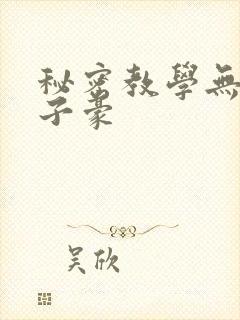 秘密教學無
子豪
吴欣